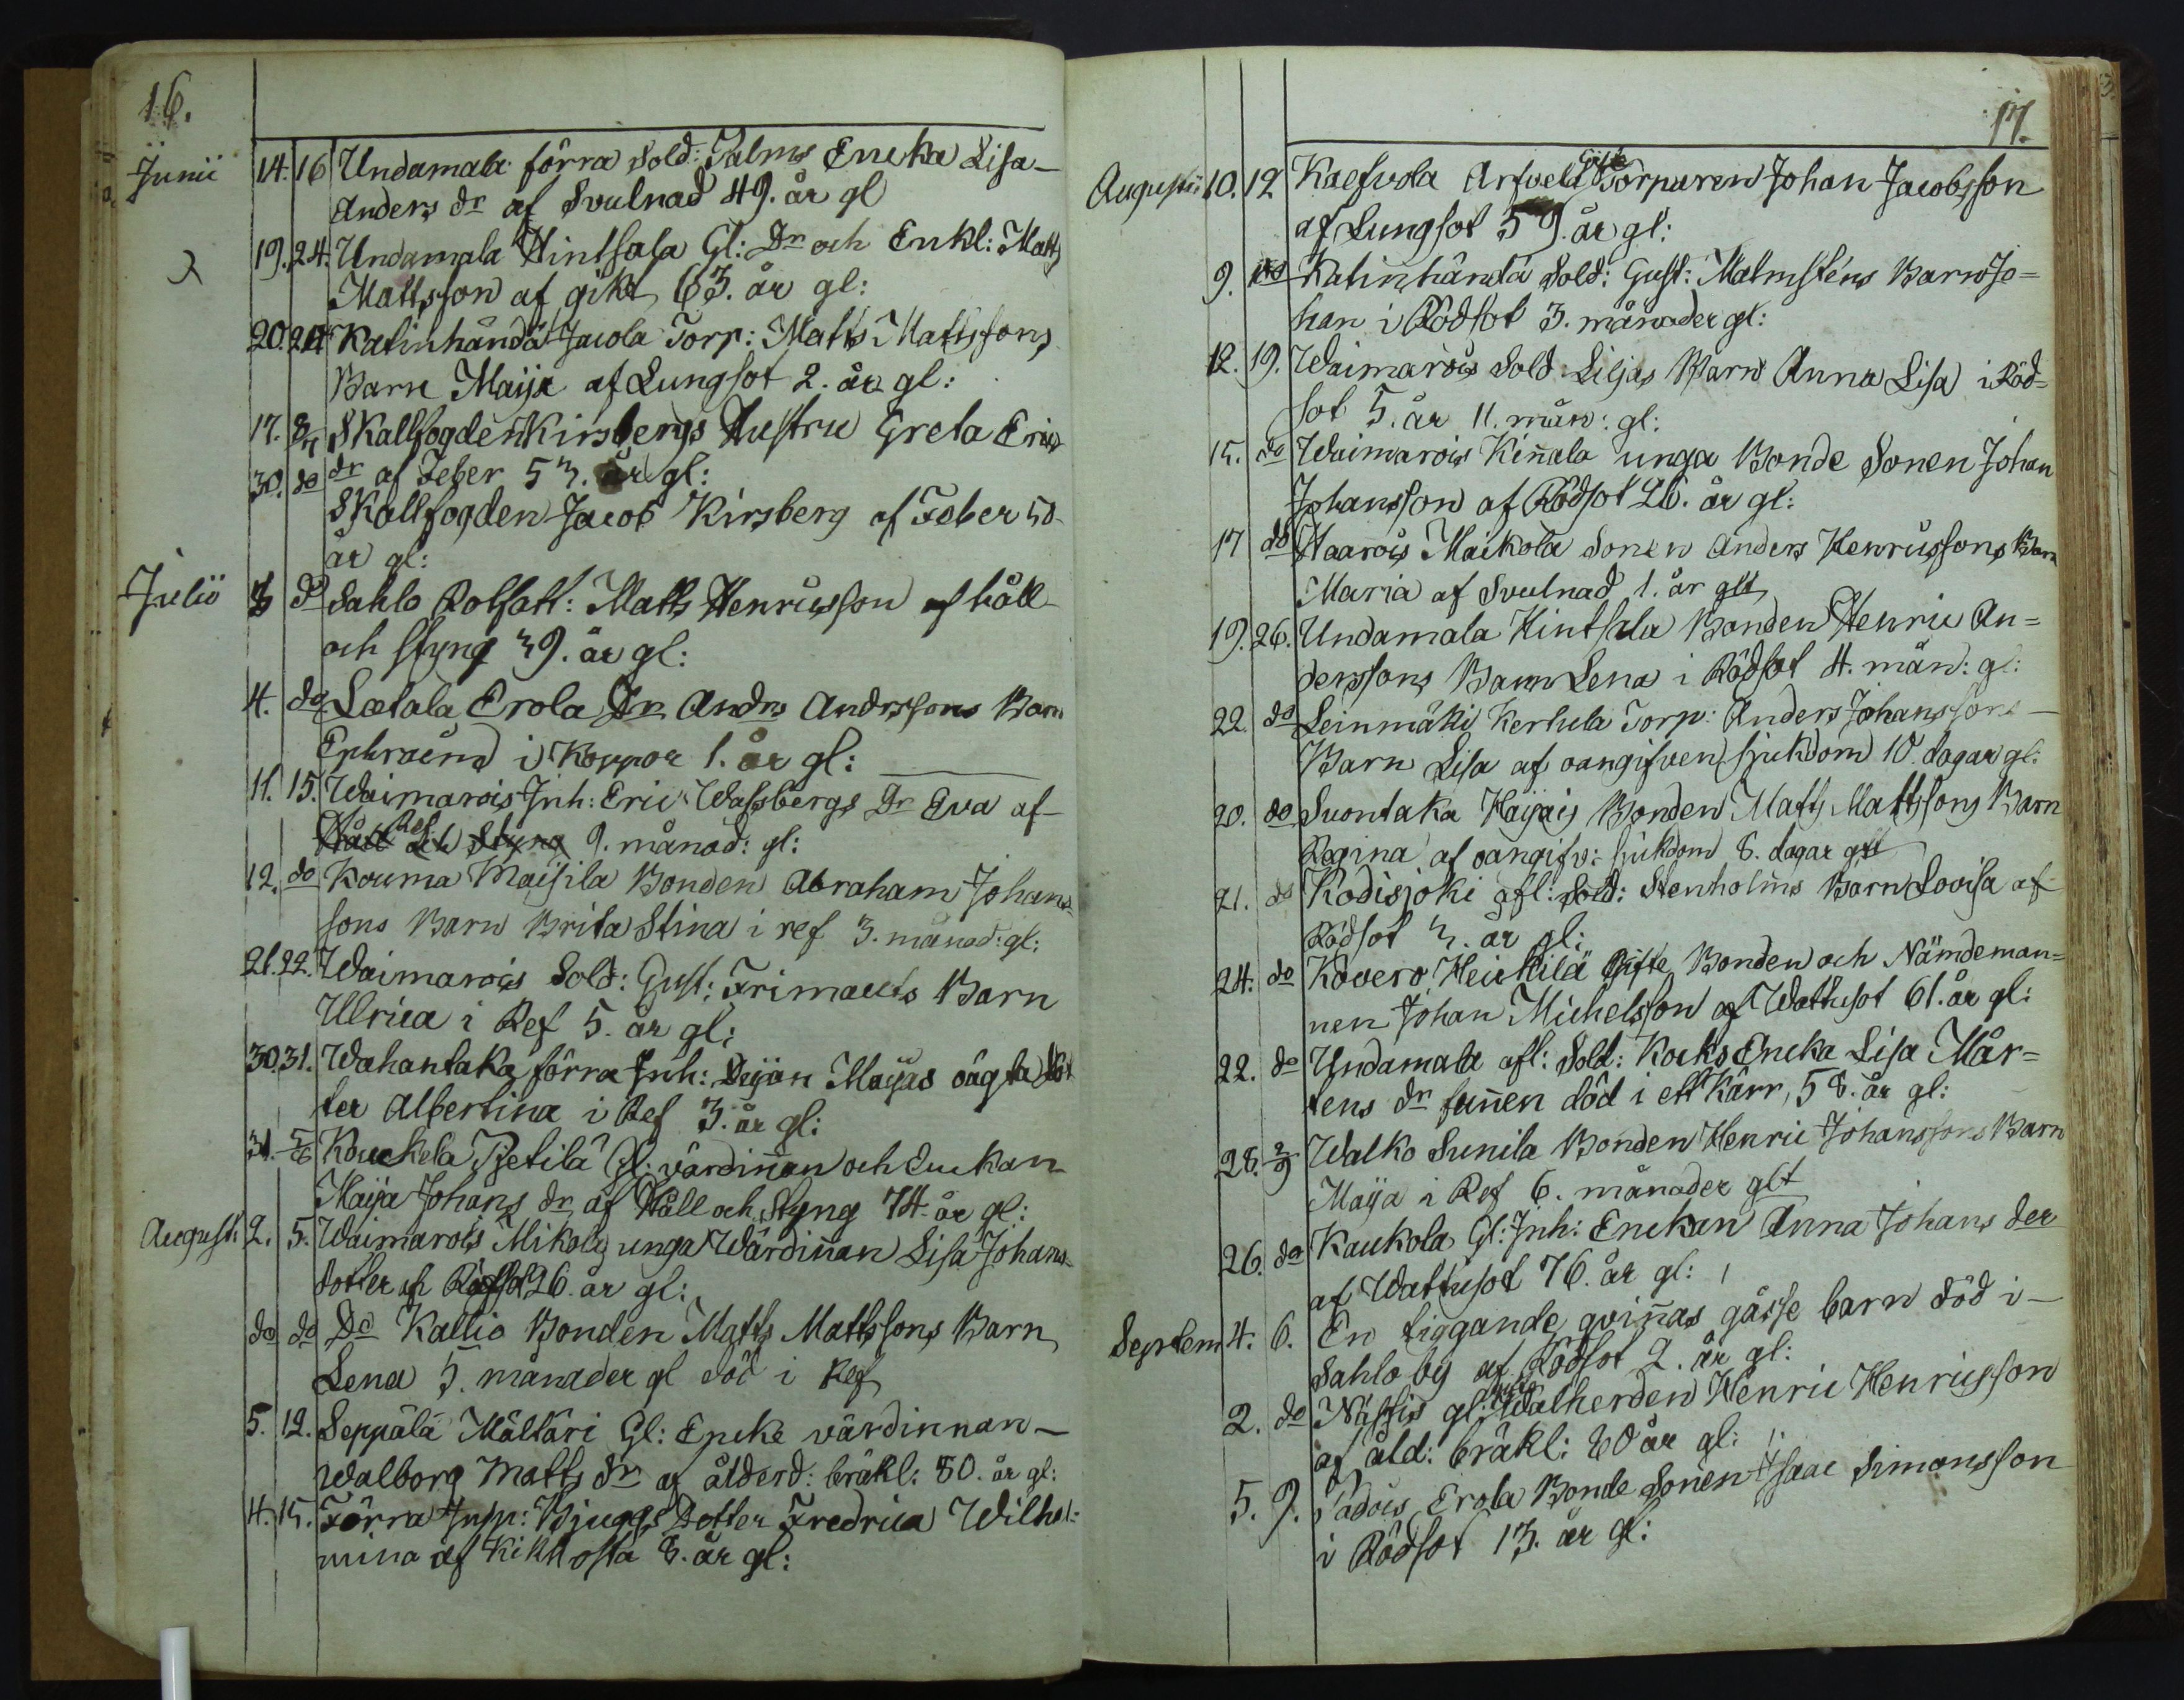 16.
Junii 14. 16 Undamala förra Sold: Palms Encka Lisa
Anders dr af Svulnad 49. år gl
19. 24. Undamala Hintsala Gl: Dr och Enkl: Matts
Mattsson af gikt 63. år gl:
20. 24 Katinhändä Jacola Torp: Matts Mattssons
Barn Maija af Lungsot 2. år gl:
17. 8/7 Skallfogden Kirsbergs Hustru Greta Erics
dr af Feber 53. år gl:
30. do Skallfogden Jacob Kirsberg af Feber 50
år gl:
Julii 8 do Sahlo Rotsatt: Matts Henricsson af håll
och styng 39. år gl:
4. do Lætala Erola Dr Andrs Andrssons Barn
Ephraim i Koppor 1. år gl:
11. 15. Waimarois Inh: Eric Wassbergs Dr Eva af
Ref
Håll och Styng 9. månad: gl:
12. do Kouma Maijila Bonden Abraham Johans-
sons Barn Brita Stina i ref 3. månad: gl:
21. 22. Waimarois Sold: Gust: Frimans Barn
Ulrica i Ref 5. år gl:
30. 31. Wahantaka förra Inh: Deijan Maijas oägta Dot
ter Albertina i Ref 3. år gl:
31. 5/8 Kouckela Pietilä Gl: värdinnan och Enckan
Maija Johans dr af Håll och Styng 74. år gl:
August: 2. 5. Waimarois Mikola unga Wärdinnan Lisa Johans-
dotter af Rödsot 26. år gl:
do do Do Kallio Bonden Matts Mattssons Barn
Lena 5. månader gl död i Ref
5. 12. Seppälä Mältäri Gl: Encke värdinnan
Walborg Matts dr af ålderd: bräkl: 80. år gl:
4. 15. Förra Insp: Bjuggs Dotter Fredrica Wilhel-
mina af Kikhosta 8. år gl:
17.
Augusti 10. 12 Kaefvola Arfvela Gifte Torparen Johan Jacobsson
af Lungsot 59. år gl:
9. do Katinhändä Sold: Gust: Malmsténs Barn Jo=
han i Rödsot 3. månader gl:
12. 19. Waimarois Sold Liljas Barn Anna Lisa i Röd=
sot 5. år 11. mån: gl:
15. do Waimarois Kinnala unga Bonde Sonen Johan
Johansson af Rödsot 26. år gl:
17 do Haarois Maikola Sonen Anders Henricssons Barn
Maria af Svulnad 1. år glt
19. 26. Undamala Hintsala Bonden Henric An=
derssons Barn Lena i Rödsot 4. mån: gl:
22. do Leinmäki Kerhula Torp: Anders Johanssons
Barn Lisa af oangifven sjukdom 10. dagar gl:
20. do Suontaka Häijäis Bonden Matts Mattssons Barn
Regina af oangifv: sjukdom 8. dagar glt
21. do Kodisjoki afl: Sold: Stenholms Barn Lovisa af
Rödsot 3. år gl:
24. do Kovero Heickilä Gifte Bonden och Nämdeman=
nen Johan Michelsson af Wattusot 61. år gl:
22. do Undamala afl: Sold: Kocks Encka Lisa Mår=
tens dr funnen död i ett Kärr, 58. år gl:
28. 2/9 Walko Sunila Bonden Henric Johanssons Barn
Maija i Ref 6. månader glt
26. do Kaukola Gl: Inh: Enckan Anna Johans der
af Wattusot 76. år gl:
Septem 4. 6. En tiggande qvinnas gåsse barn död i
Sahlo by af Rödsot 2. år gl:
2. do gl: Walherden Henric Henricsson
af åld: bräkl: 80 år gl:
5. 9. Padois Erola Bonde Sonen Isaac Simonsson
i Rödsot 13. år gl: